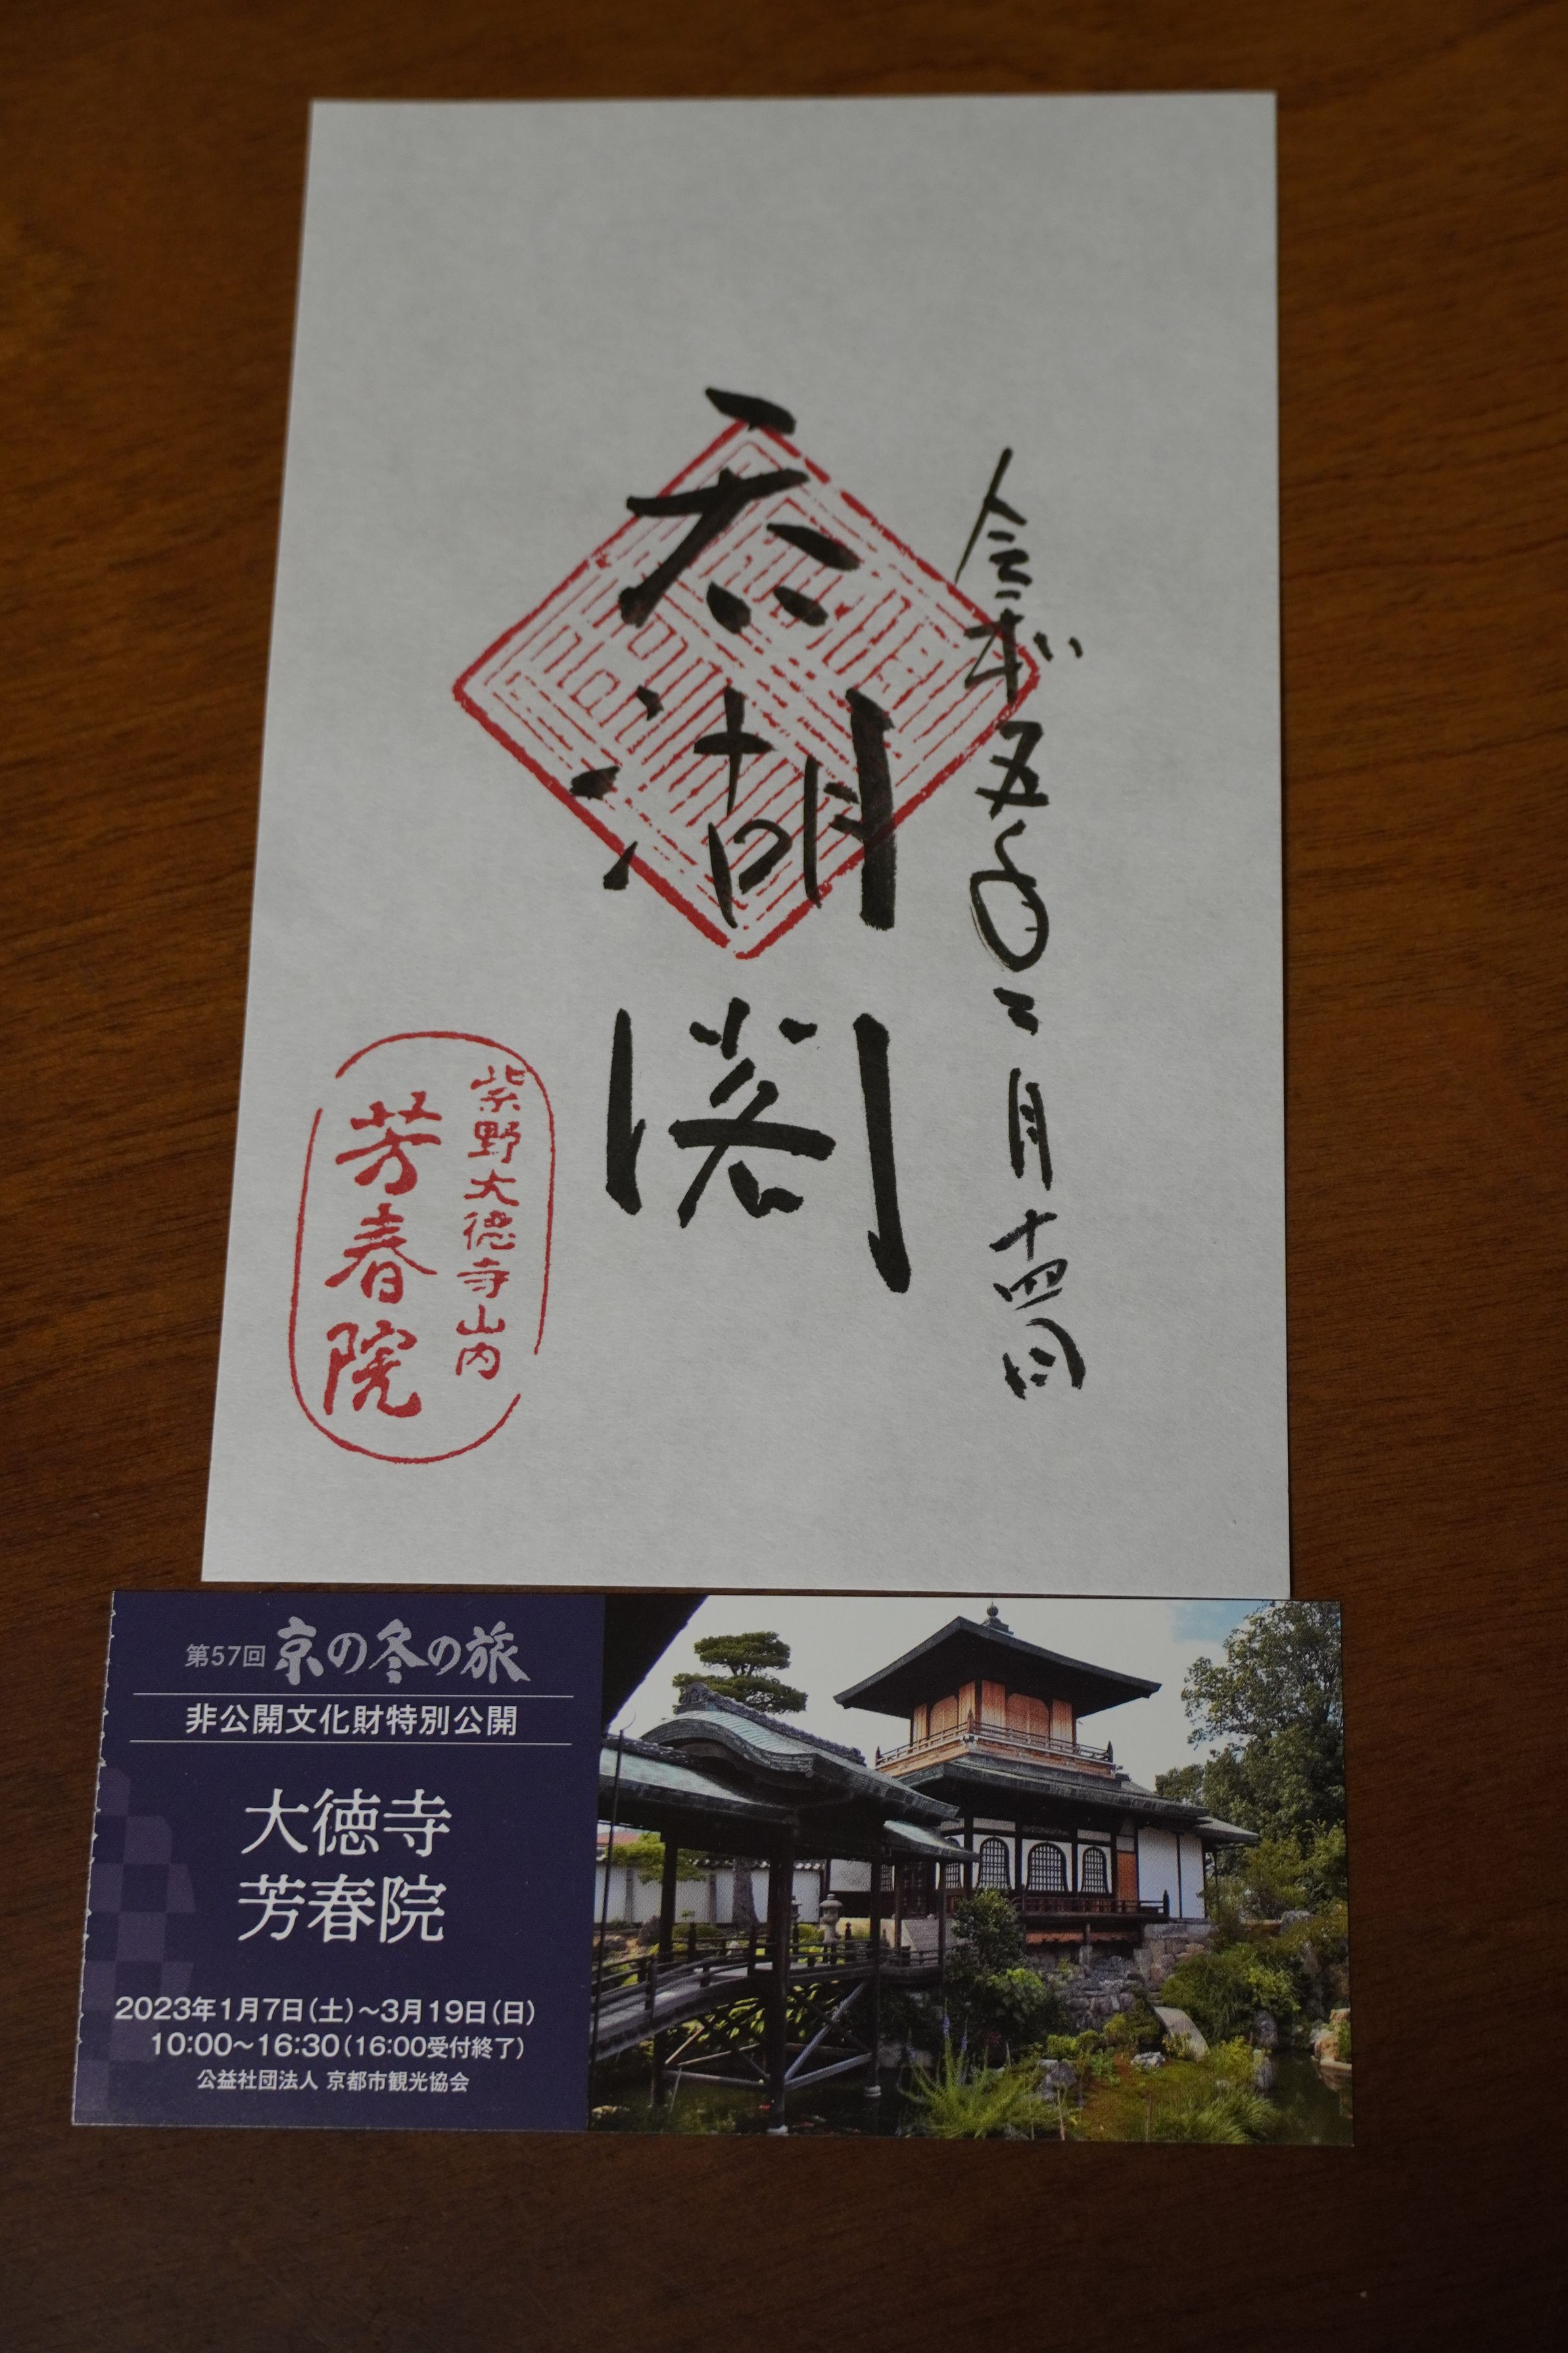 令和五年二月十四日
呑湖閣
紫野大徳寺山内
芳春院
第57回 京の冬の旅
非公開文化財特別公開
大徳寺
芳春院
2023年1月7日(土)~3月19日(日)
10:00~16:30(16:00受付終了)
公益社団法人 京都市観光協会